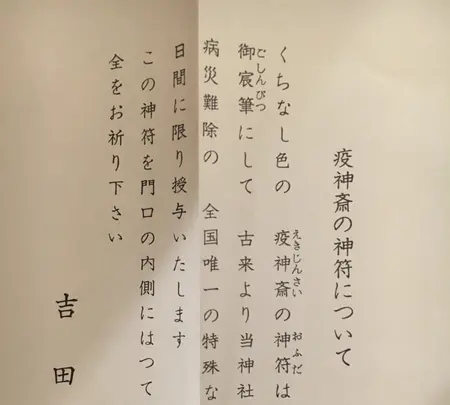 疫神斎の神符について
くちなし色の 疫神斎の神符は
えきじんさい おふだ
御宸筆にして 古来より当神社
ごしんぴつ
病災難除の 全国唯一の特殊な
日間に限り授与いたします
この神符を門口の内側にはつて
全をお祈り下さい
吉田